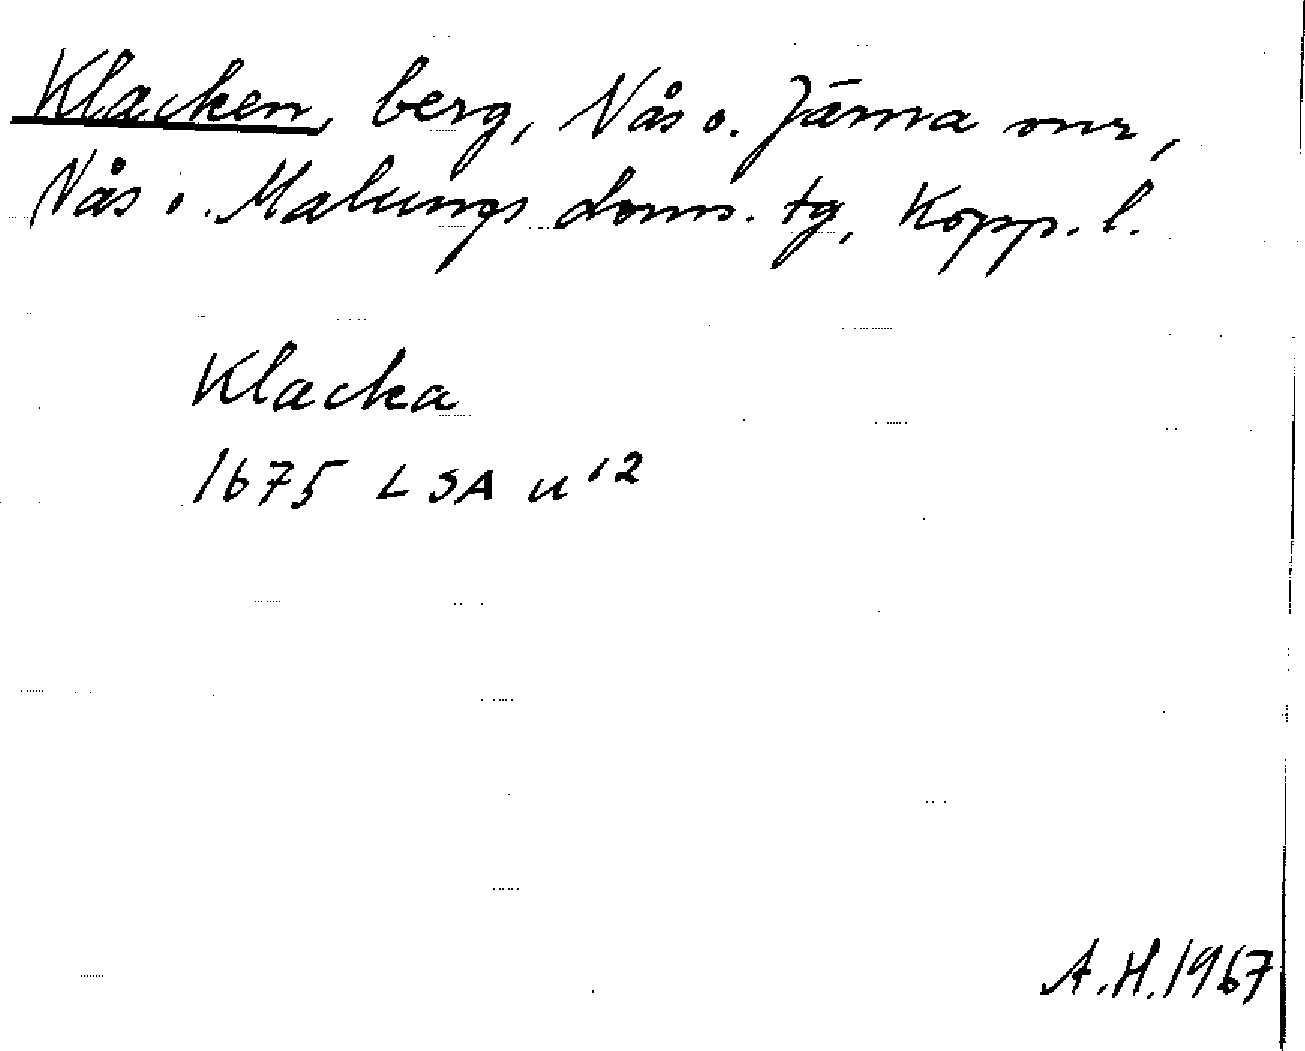 Klacken, berg, Nås o. Järna snr,
Nås o. Malungs doms. tg, Kopp. l.
Klacka
1675 LSA u 12
A.H.1967